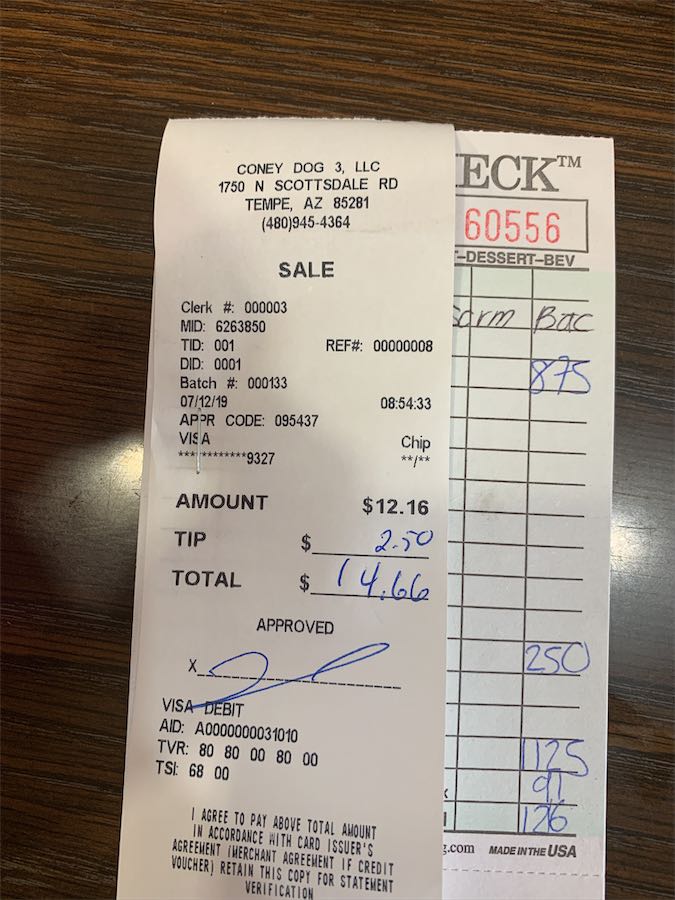 CONEY DOG 3, LLC
1750 N SCOTTSDALE RD
TEMPE, AZ 85281
(480)945-4364
SALE
Clerk #: 000003
MID: 6263850
TID: 001 REF#: 00000008
DID: 0001
Batch #: 000133
07/12/19 08:54:33
APPR CODE: 095437
VISA Chip
************9327 **/**
AMOUNT $12.16
TIP $ 2.50
TOTAL $ 14.66
APPROVED
X
VISA DEBIT
AID: A0000000031010
TVR: 80 80 00 80 00
TSI: 68 00
I AGREE TO PAY ABOVE TOTAL AMOUNT
IN ACCORDANCE WITH CARD ISSUER'S
AGREEMENT (MERCHANT AGREEMENT IF CREDIT
VOUCHER) RETAIN THIS COPY FOR STATEMENT
VERIFICATION
ECK™
60556
T-DESSERT-BEV
Bac
875
250
1125
91
126
g.com MADE IN THE USA